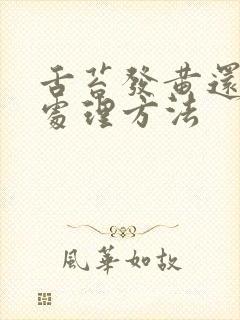 舌苔發黄還
處理方法
風華如故